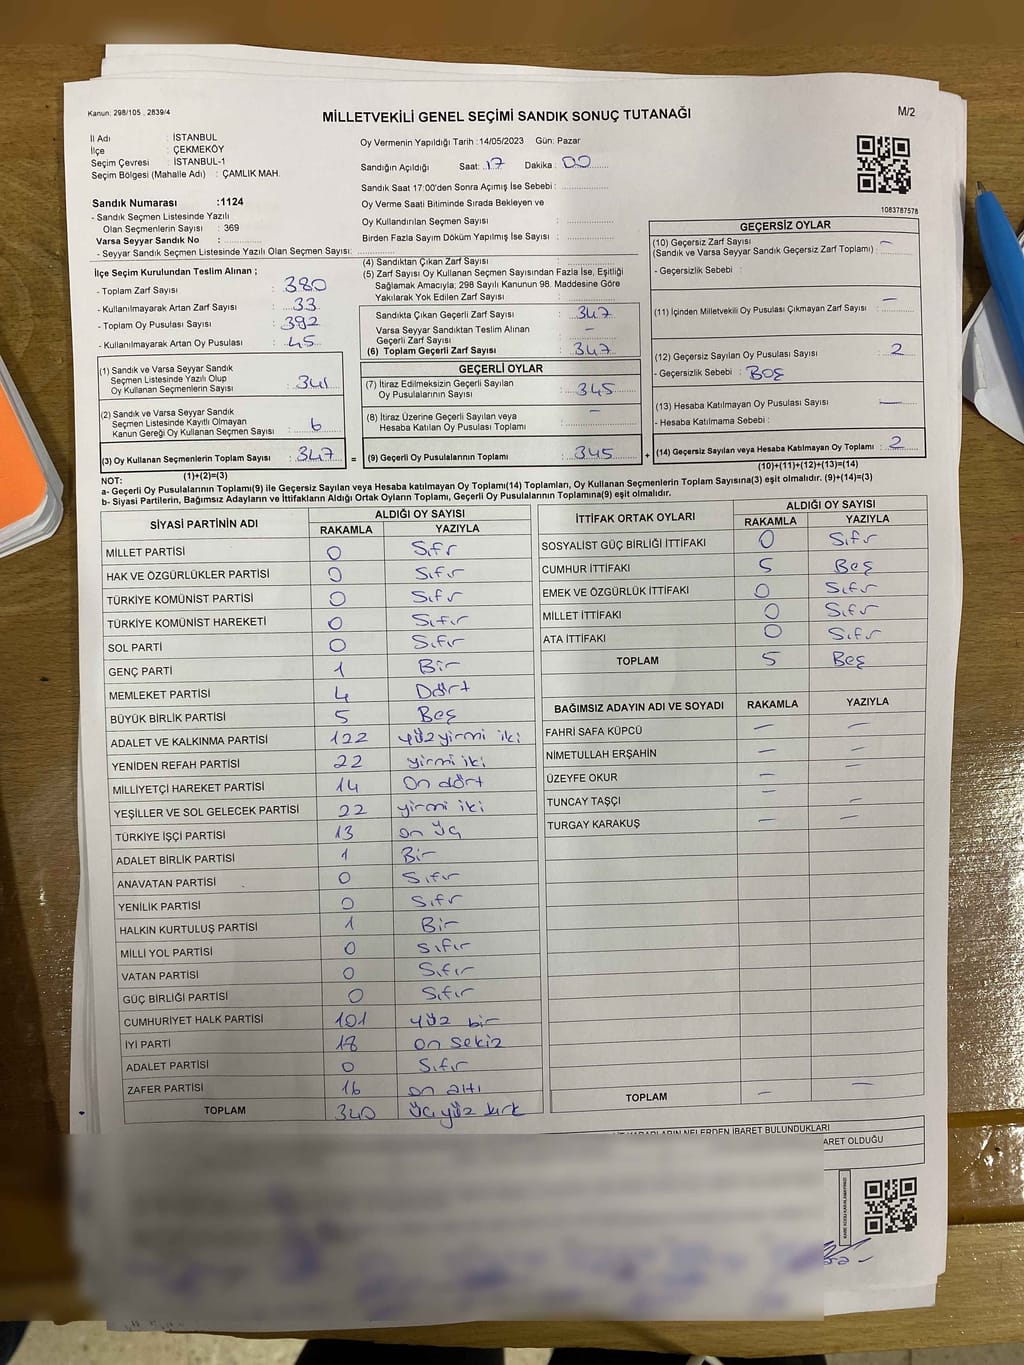 Kanun: 298/105 , 2839/4
MİLLETVEKİLİ GENEL SEÇİMİ SANDIK SONUÇ TUTANAĞI
M/2
İl Adı : İSTANBUL
İlçe : ÇEKMEKÖY
Seçim Çevresi : İSTANBUL-1
Seçim Bölgesi (Mahalle Adı) : ÇAMLIK MAH.
Oy Vermenin Yapıldığı Tarih :14/05/2023 Gün: Pazar
Sandığın Açıldığı Saat: 17 Dakika : 00
Sandık Saat 17:00'den Sonra Açımış İse Sebebi :
Oy Verme Saati Bitiminde Sırada Bekleyen ve
Oy Kullandırılan Seçmen Sayısı :
Birden Fazla Sayım Döküm Yapılmış İse Sayısı :
1083787578
Sandık Numarası :1124
- Sandık Seçmen Listesinde Yazılı
Olan Seçmenlerin Sayısı : 369
Varsa Seyyar Sandık No :
- Seyyar Sandık Seçmen Listesinde Yazılı Olan Seçmen Sayısı:
İlçe Seçim Kurulundan Teslim Alınan ;
- Toplam Zarf Sayısı : 380
- Kullanılmayarak Artan Zarf Sayısı : 33
- Toplam Oy Pusulası Sayısı : 392
- Kullanılmayarak Artan Oy Pusulası : 45
(1) Sandık ve Varsa Seyyar Sandık
Seçmen Listesinde Yazılı Olup
Oy Kullanan Seçmenlerin Sayısı : 341
(2) Sandık ve Varsa Seyyar Sandık
Seçmen Listesinde Kayıtlı Olmayan
Kanun Gereği Oy Kullanan Seçmen Sayısı : 6
(3) Oy Kullanan Seçmenlerin Toplam Sayısı : 347 =
(1)+(2)=(3)
(4) Sandıktan Çıkan Zarf Sayısı :
(5) Zarf Sayısı Oy Kullanan Seçmen Sayısından Fazla İse, Eşitliği
Sağlamak Amacıyla; 298 Sayılı Kanunun 98. Maddesine Göre
Yakılarak Yok Edilen Zarf Sayısı :
Sandıkta Çıkan Geçerli Zarf Sayısı : 347
Varsa Seyyar Sandıktan Teslim Alınan
Geçerli Zarf Sayısı : –
(6) Toplam Geçerli Zarf Sayısı : 347
GEÇERLİ OYLAR
(7) İtiraz Edilmeksizin Geçerli Sayılan
Oy Pusulalarının Sayısı : 345
(8) İtiraz Üzerine Geçerli Sayılan veya
Hesaba Katılan Oy Pusulası Toplamı : –
(9) Geçerli Oy Pusulalarının Toplamı : 345 +
GEÇERSİZ OYLAR
(10) Geçersiz Zarf Sayısı
(Sandık ve Varsa Seyyar Sandık Geçersiz Zarf Toplamı) : –
- Geçersizlik Sebebi :
(11) İçinden Milletvekili Oy Pusulası Çıkmayan Zarf Sayısı : –
(12) Geçersiz Sayılan Oy Pusulası Sayısı : 2
- Geçersizlik Sebebi : BOŞ
(13) Hesaba Katılmayan Oy Pusulası Sayısı : –
- Hesaba Katılmama Sebebi :
(14) Geçersiz Sayılan veya Hesaba Katılmayan Oy Toplamı : 2
(10)+(11)+(12)+(13)=(14)
NOT:
a- Geçerli Oy Pusulalarının Toplamı(9) ile Geçersiz Sayılan veya Hesaba katılmayan Oy Toplamı(14) Toplamları, Oy Kullanan Seçmenlerin Toplam Sayısına(3) eşit olmalıdır. (9)+(14)=(3)
b- Siyasi Partilerin, Bağımsız Adayların ve İttifakların Aldığı Ortak Oyların Toplamı, Geçerli Oy Pusulalarının Toplamına(9) eşit olmalıdır.
SİYASİ PARTİNİN ADI ALDIĞI OY SAYISI
RAKAMLA YAZIYLA
MİLLET PARTİSİ 0 Sıfır
HAK VE ÖZGÜRLÜKLER PARTİSİ 0 Sıfır
TÜRKİYE KOMÜNİST PARTİSİ 0 Sıfır
TÜRKİYE KOMÜNİST HAREKETİ 0 Sıfır
SOL PARTİ 0 Sıfır
GENÇ PARTİ 1 Bir
MEMLEKET PARTİSİ 4 Dört
BÜYÜK BİRLİK PARTİSİ 5 Beş
ADALET VE KALKINMA PARTİSİ 122 yüz yirmi iki
YENİDEN REFAH PARTİSİ 22 yirmi iki
MİLLİYETÇİ HAREKET PARTİSİ 14 On dört
YEŞİLLER VE SOL GELECEK PARTİSİ 22 yirmi iki
TÜRKİYE İŞÇİ PARTİSİ 13 on üç
ADALET BİRLİK PARTİSİ 1 Bir
ANAVATAN PARTİSİ 0 Sıfır
YENİLİK PARTİSİ 0 Sıfır
HALKIN KURTULUŞ PARTİSİ 1 Bir
MİLLİ YOL PARTİSİ 0 Sıfır
VATAN PARTİSİ 0 Sıfır
GÜÇ BİRLİĞİ PARTİSİ 0 Sıfır
CUMHURİYET HALK PARTİSİ 101 yüz bir
İYİ PARTİ 18 on sekiz
ADALET PARTİSİ 0 Sıfır
ZAFER PARTİSİ 16 on altı
TOPLAM 340 üç yüz kırk
İTTİFAK ORTAK OYLARI ALDIĞI OY SAYISI
RAKAMLA YAZIYLA
SOSYALİST GÜÇ BİRLİĞİ İTTİFAKI 0 Sıfır
CUMHUR İTTİFAKI 5 Beş
EMEK VE ÖZGÜRLÜK İTTİFAKI 0 Sıfır
MİLLET İTTİFAKI 0 Sıfır
ATA İTTİFAKI 0 Sıfır
TOPLAM 5 Beş
BAĞIMSIZ ADAYIN ADI VE SOYADI RAKAMLA YAZIYLA
FAHRİ SAFA KÜPCÜ – –
NİMETULLAH ERŞAHİN – –
ÜZEYFE OKUR – –
TUNCAY TAŞÇI – –
TURGAY KARAKUŞ – –
TOPLAM – –
NELERDEN İBARET BULUNDUKLARI
ARET OLDUĞU